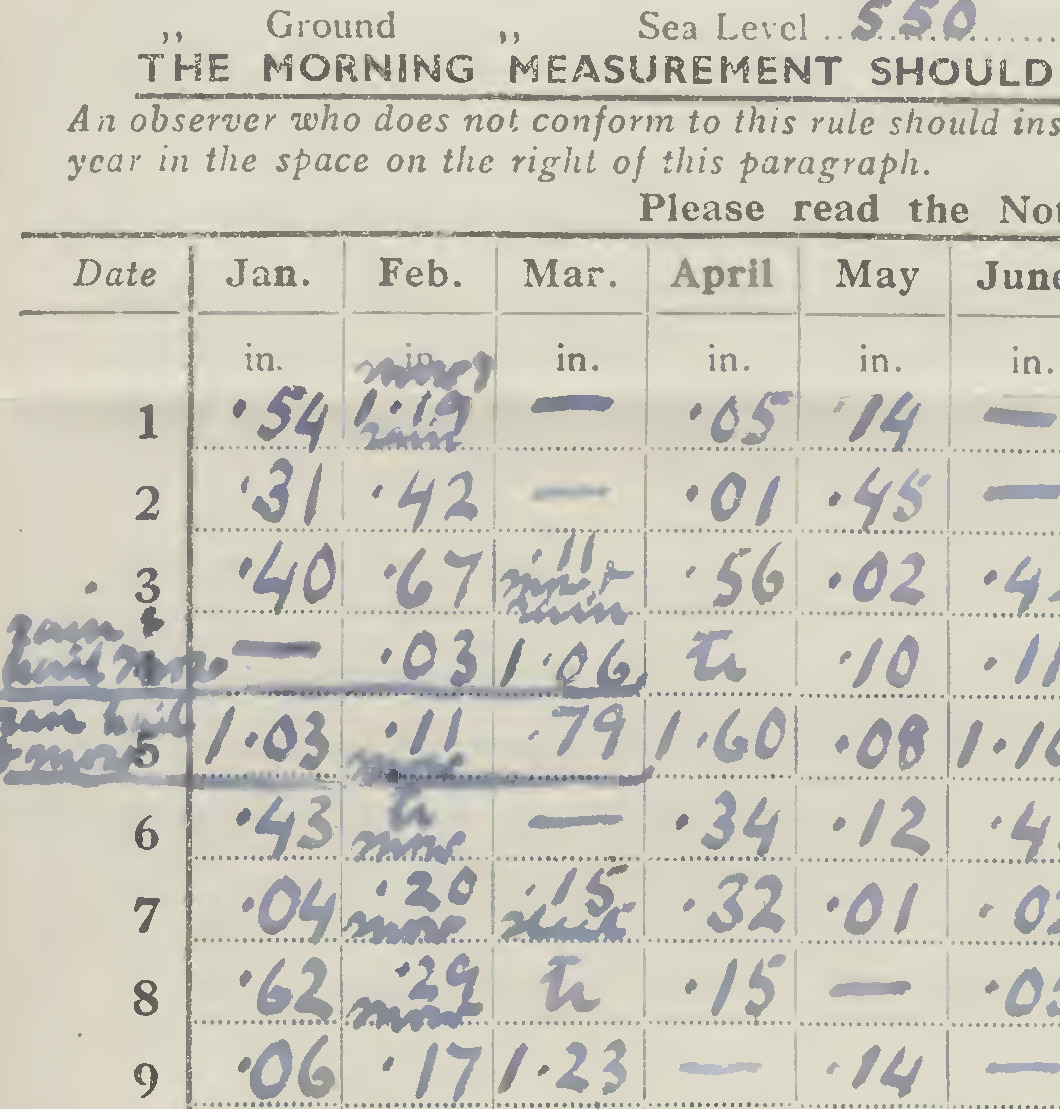 ,, Ground ,, Sea Level .. 550
THE MORNING MEASUREMENT SHOULD
An observer who does not conform to this rule should ins
year in the space on the right of this paragraph.
Please read the Not
Date Jan. Feb. Mar. April May June
in. in. in. in. in. in.
snow &
1 .54 1.19 — .05 .14 —
rain
2 .31 .42 — .01 .45 —
3 .40 .67 .11 .56 .02 .4
rain
rain &
hail snow — .03 1.06 tr .10 .11
rain hail
5 1.03 .11 .79 1.60 .08 1.10
& snow snow
6 .43 tr — .34 .12 .4
snow
7 .04 .20 .15 .32 .01 .0
snow
8 .62 .29 tr .15 — .0
snow
9 .06 .17 1.23 — .14 —